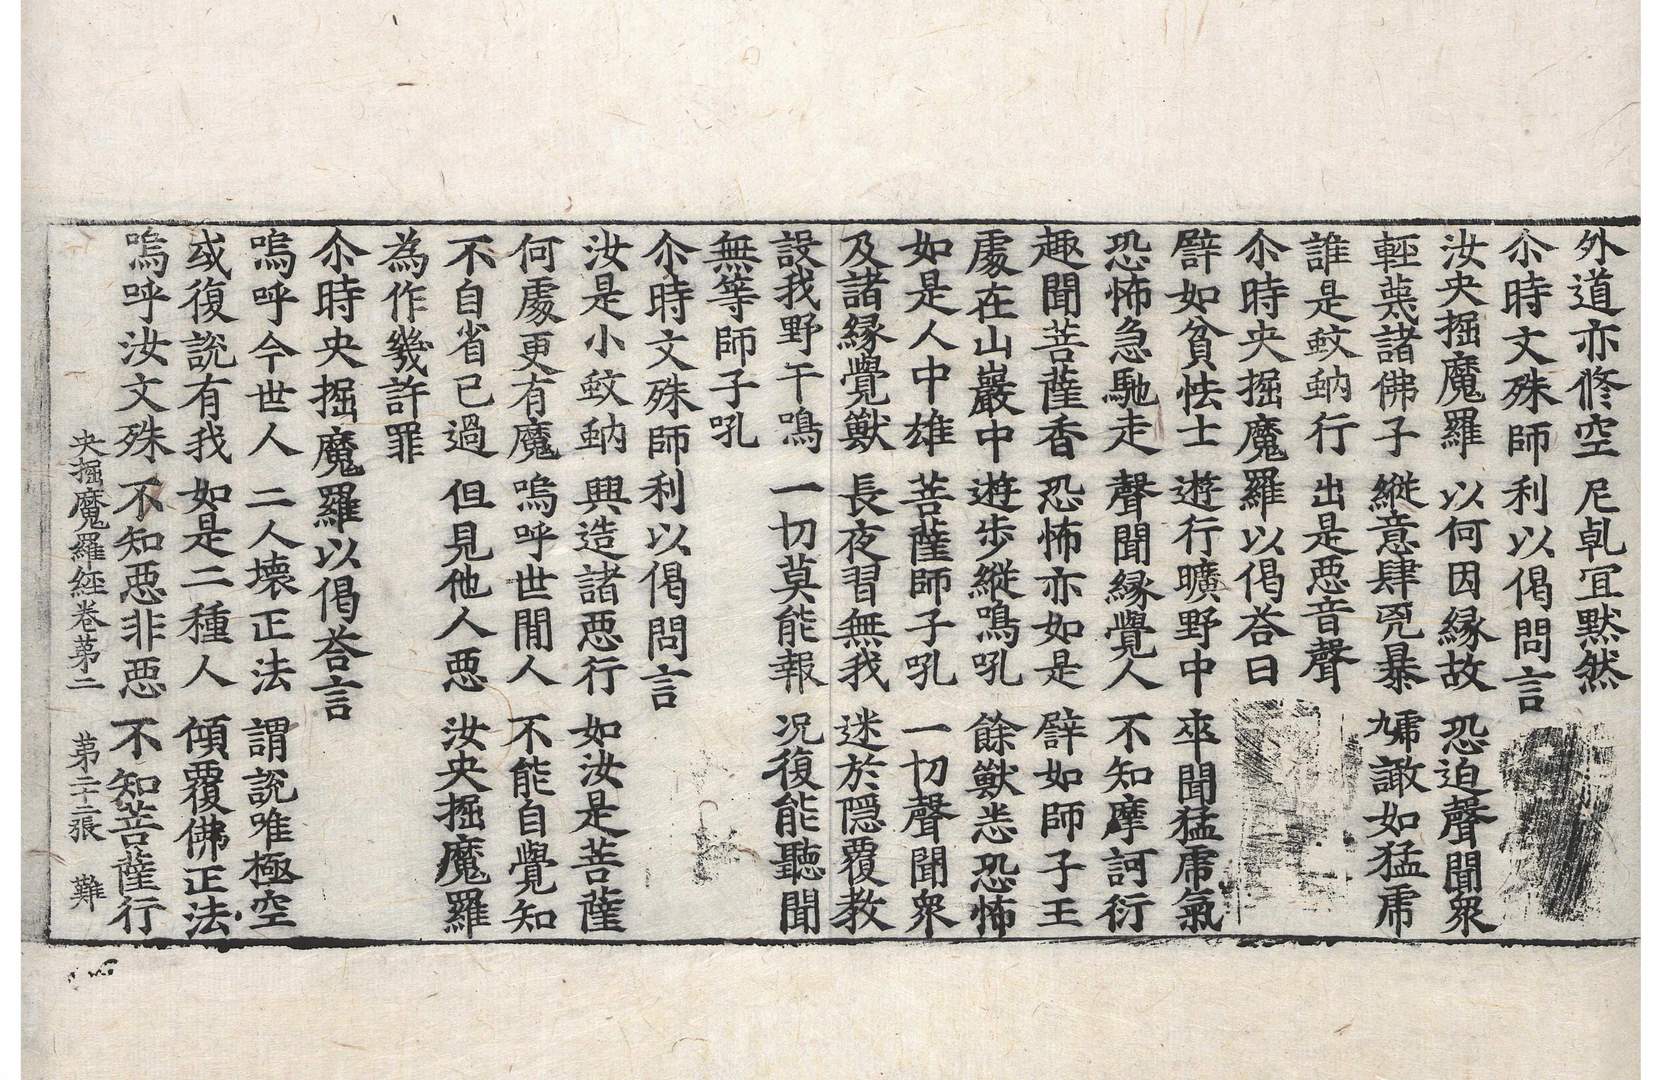 外道亦修空 尼乹宜默然
尒時文殊師利以偈問言
汝央掘魔羅 以何因緣故 恐迫聲聞衆
輕蔑諸佛子 縱意肆兇暴 虓㘚如猛虎
誰是蚊蚋行 出是惡音聲
尒時央掘魔羅以偈荅曰
譬如貧怯士 遊行曠野中 卒聞猛虎氣
恐怖急馳走 聲聞緣覺人 不知摩訶衍
趣聞菩薩香 恐怖亦如是 譬如師子王
處在山巖中 遊步縱鳴吼 餘獸悉恐怖
如是人中雄 菩薩師子吼 一切聲聞衆
及諸緣覺獸 長夜習無我 迷於隱覆教
設我野干鳴 一切莫能報 况復能聽聞
無等師子吼
尒時文殊師利以偈問言
汝是小蚊蚋 興造諸惡行 如汝是菩薩
何處更有魔 嗚呼世閒人 不能自覺知
不自省己過 但見他人惡 汝央掘魔羅
為作幾許罪
尒時央掘魔羅以偈荅言
嗚呼今世人 二人壞正法 謂說唯極空
或復說有我 如是二種人 傾覆佛正法
嗚呼汝文殊 不知惡非惡 不知菩薩行
央掘魔羅經卷苐二 苐二十二張 難